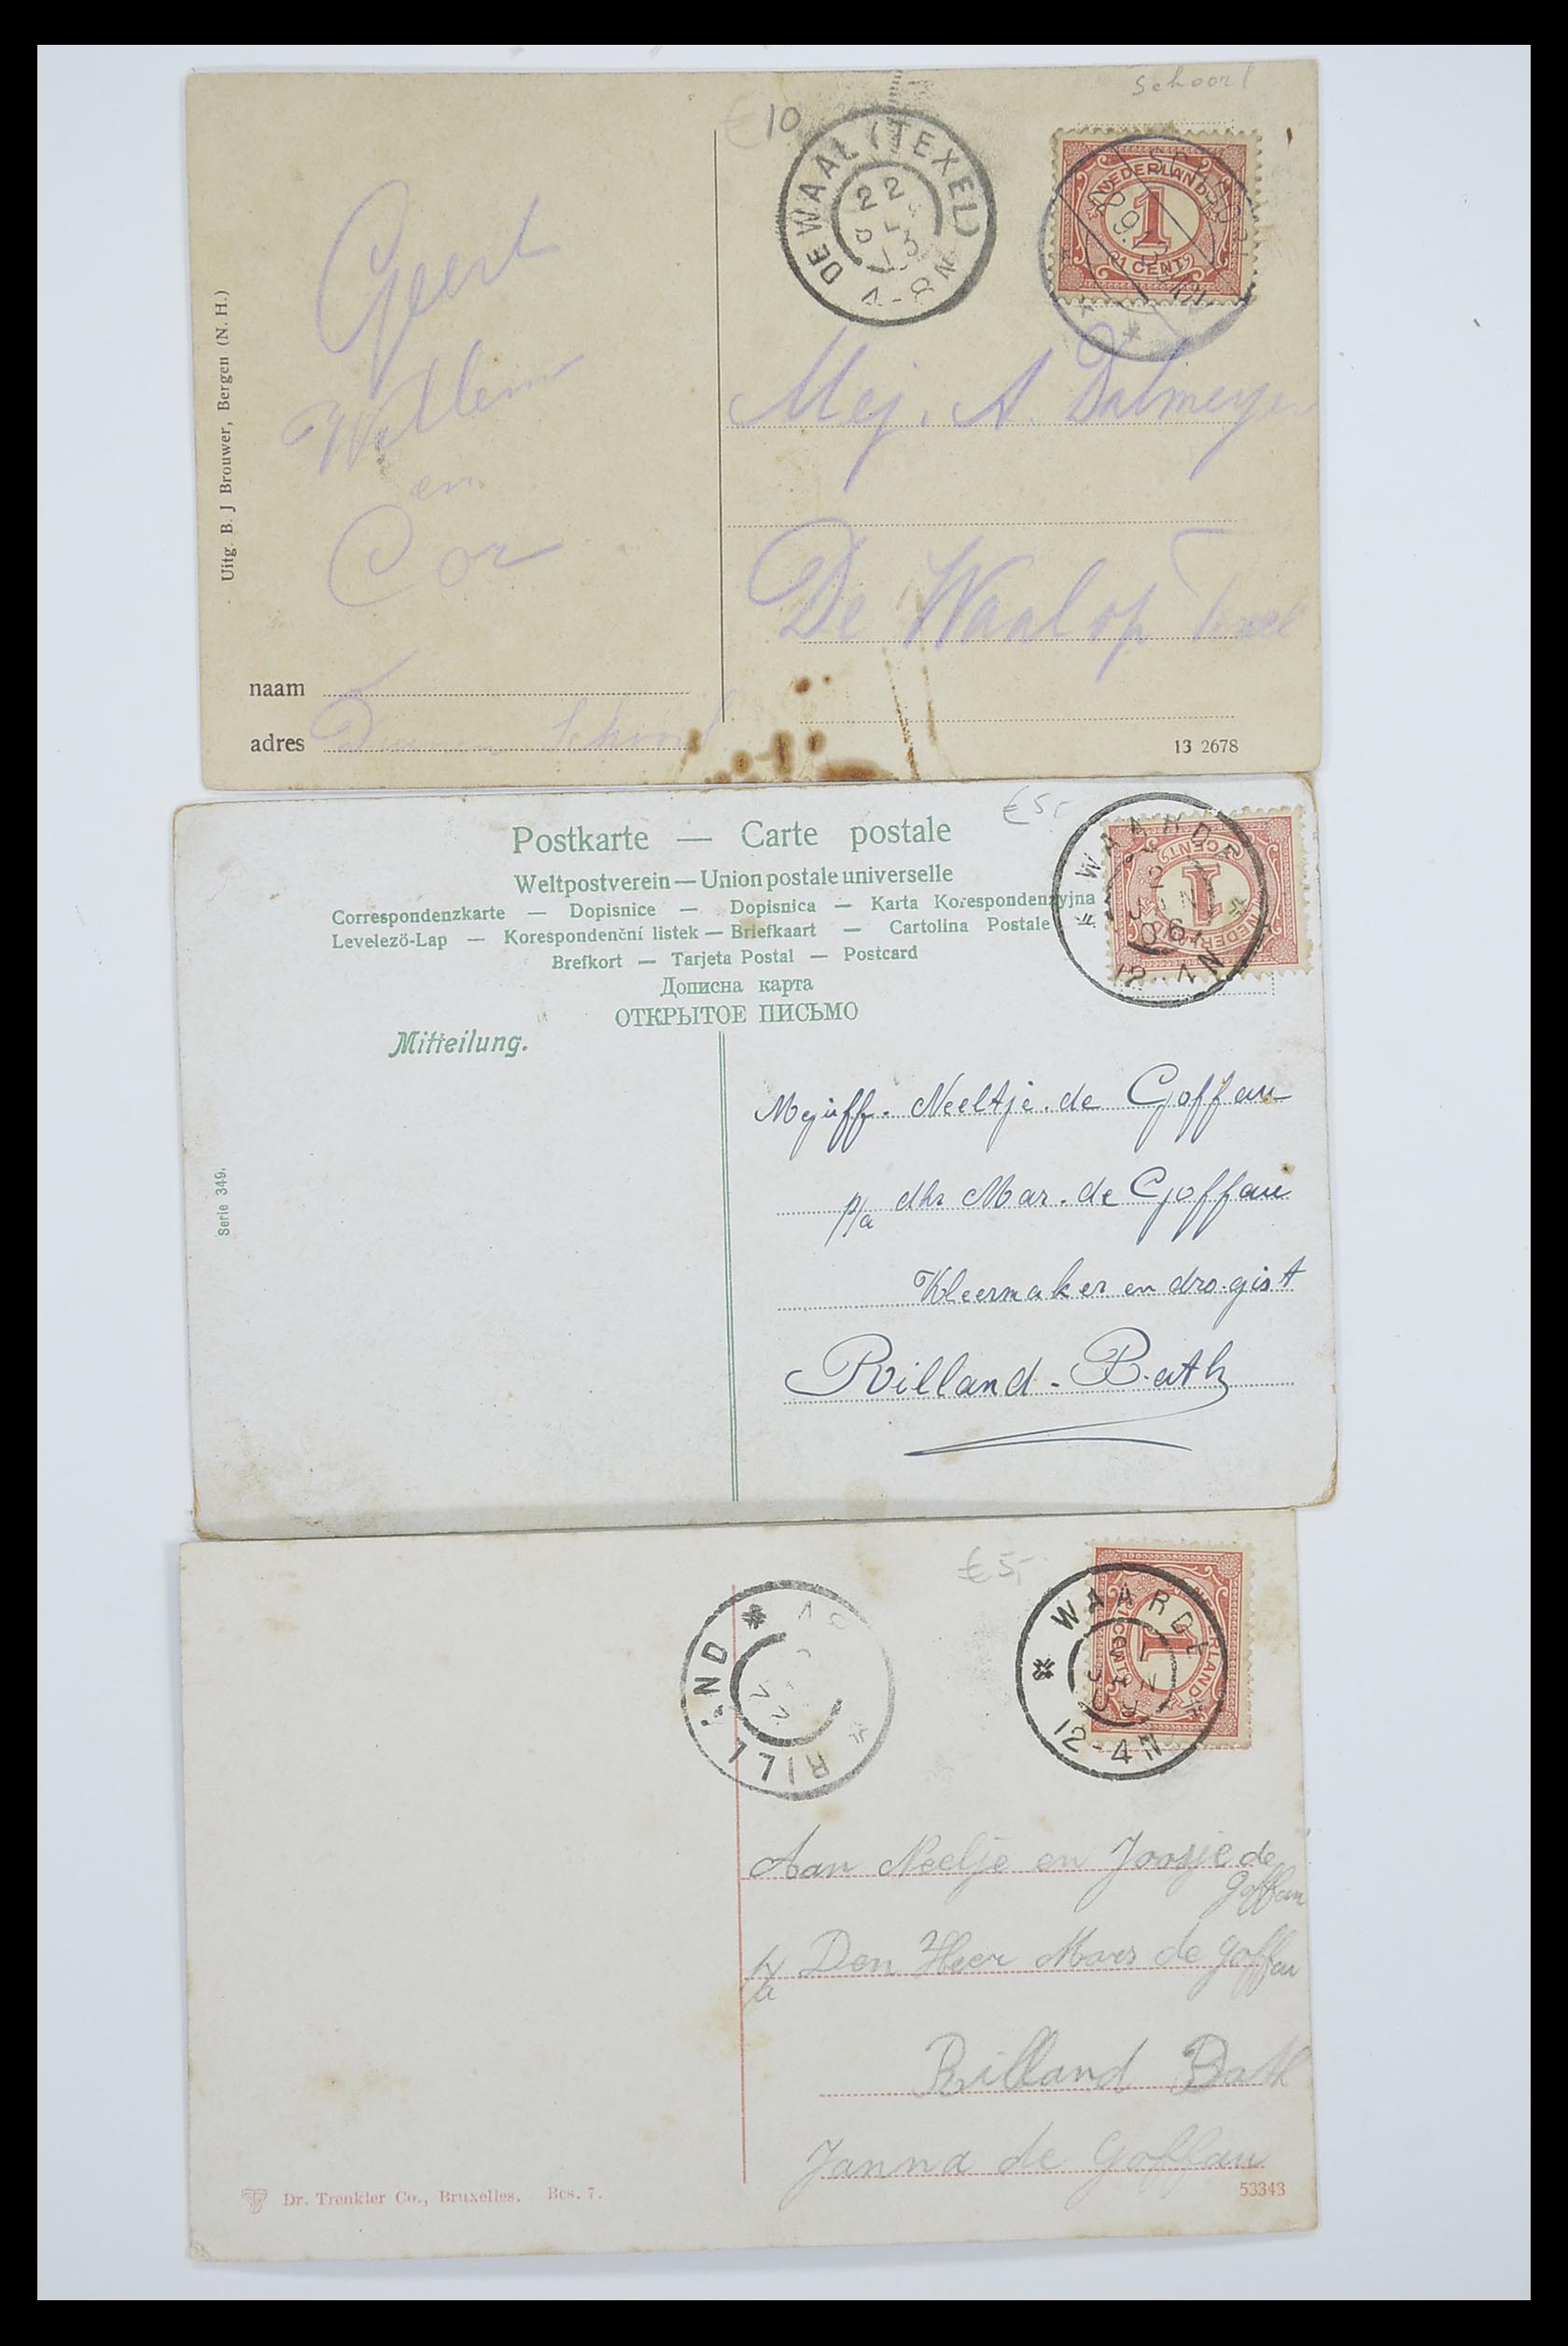 Schoorl
€10
DE WAAL (TEXEL)
22
13
4-8N
NEDERLAND
1
1 CENT
Geert
Willem
en
Cor
Mej. A. Dalmeyer
De Waal op Texel
Uitg. B. J Brouwer, Bergen (N. H.)
naam
adres
13 2678
€5,-
Postkarte — Carte postale
Weltpostverein — Union postale universelle
Correspondenzkarte — Dopisnice — Dopisnica — Karta Korespondenzyjna
Levelező-Lap — Korespondenční listek — Briefkaart — Cartolina Postale
Brefkort — Tarjeta Postal — Postcard
Дописна карта
ОТКРЫТОЕ ПИСЬМО
Mitteilung.
WAARDE
12-4N
1
CENT
NEDERLAND
Serie 349.
Mejuff. Neeltje de Goffau
p/a dhr Mar. de Goffau
Kleermaker en drogist
Rilland-Bath
€5,-
RILLAND
WAARDE
2 JAN 09
12-4N
1
1 CENT
Aan Neeltje en Joosje de
Goffau
p/a Den Heer Mars de Goffau
Rilland Bath
Janna de Goffau
Dr. Trenkler Co., Bruxelles. Bes. 7.
53343